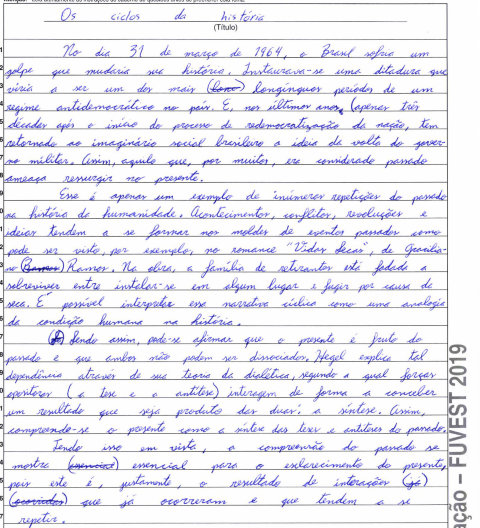 Os ciclos da história
(Título)
No dia 31 de março de 1964, o Brasil sofria um
golpe que mudaria sua história. Instaurava-se uma ditadura que
viria a ser um dos mais longínquos períodos de um
regime antidemocrático no país. E nos últimos anos, (apenas três
décadas após o início do processo de redemocratização da nação, tem
retornado ao imaginário social brasileiro a ideia da volta do gover-
no militar. Assim, aquilo que, por muitos, era considerado passado
ameaça ressurgir no presente.
Esse é apenas um exemplo de inúmeras repetições do passado
na história da humanidade. Acontecimentos, conflitos, revoluções e
ideias tendem a se formar nos moldes de eventos passados como
pode ser visto, por exemplo, no romance "Vidas Secas", de Gracilia-
no (Ramos) Ramos. Na obra, a família de retirantes está fadada a
sobreviver entre instalar-se em algum lugar e fugir por causa da
seca. É possível interpretar essa narrativa cíclica como uma analogia
da condição humana na história.
Sendo assim, pode-se afirmar que o presente é fruto do
passado e que ambos não podem ser dissociados. Hegel explica tal
dependência através de sua teoria da dialética, segundo a qual forças
opositoras (a tese e a antítese) interagem de forma a conceber
um resultado que seja produto das duas: a síntese. Assim,
compreende-se o presente como a síntese das teses e antíteses do passado.
Tendo isso em vista, a compreensão do passado se
mostra (essencial) essencial para o esclarecimento do presente,
pois este é, justamente, o resultado de interações (já)
(ocorridas) que já ocorreram e que tendem a se
repetir.
ação – FUVEST 2019